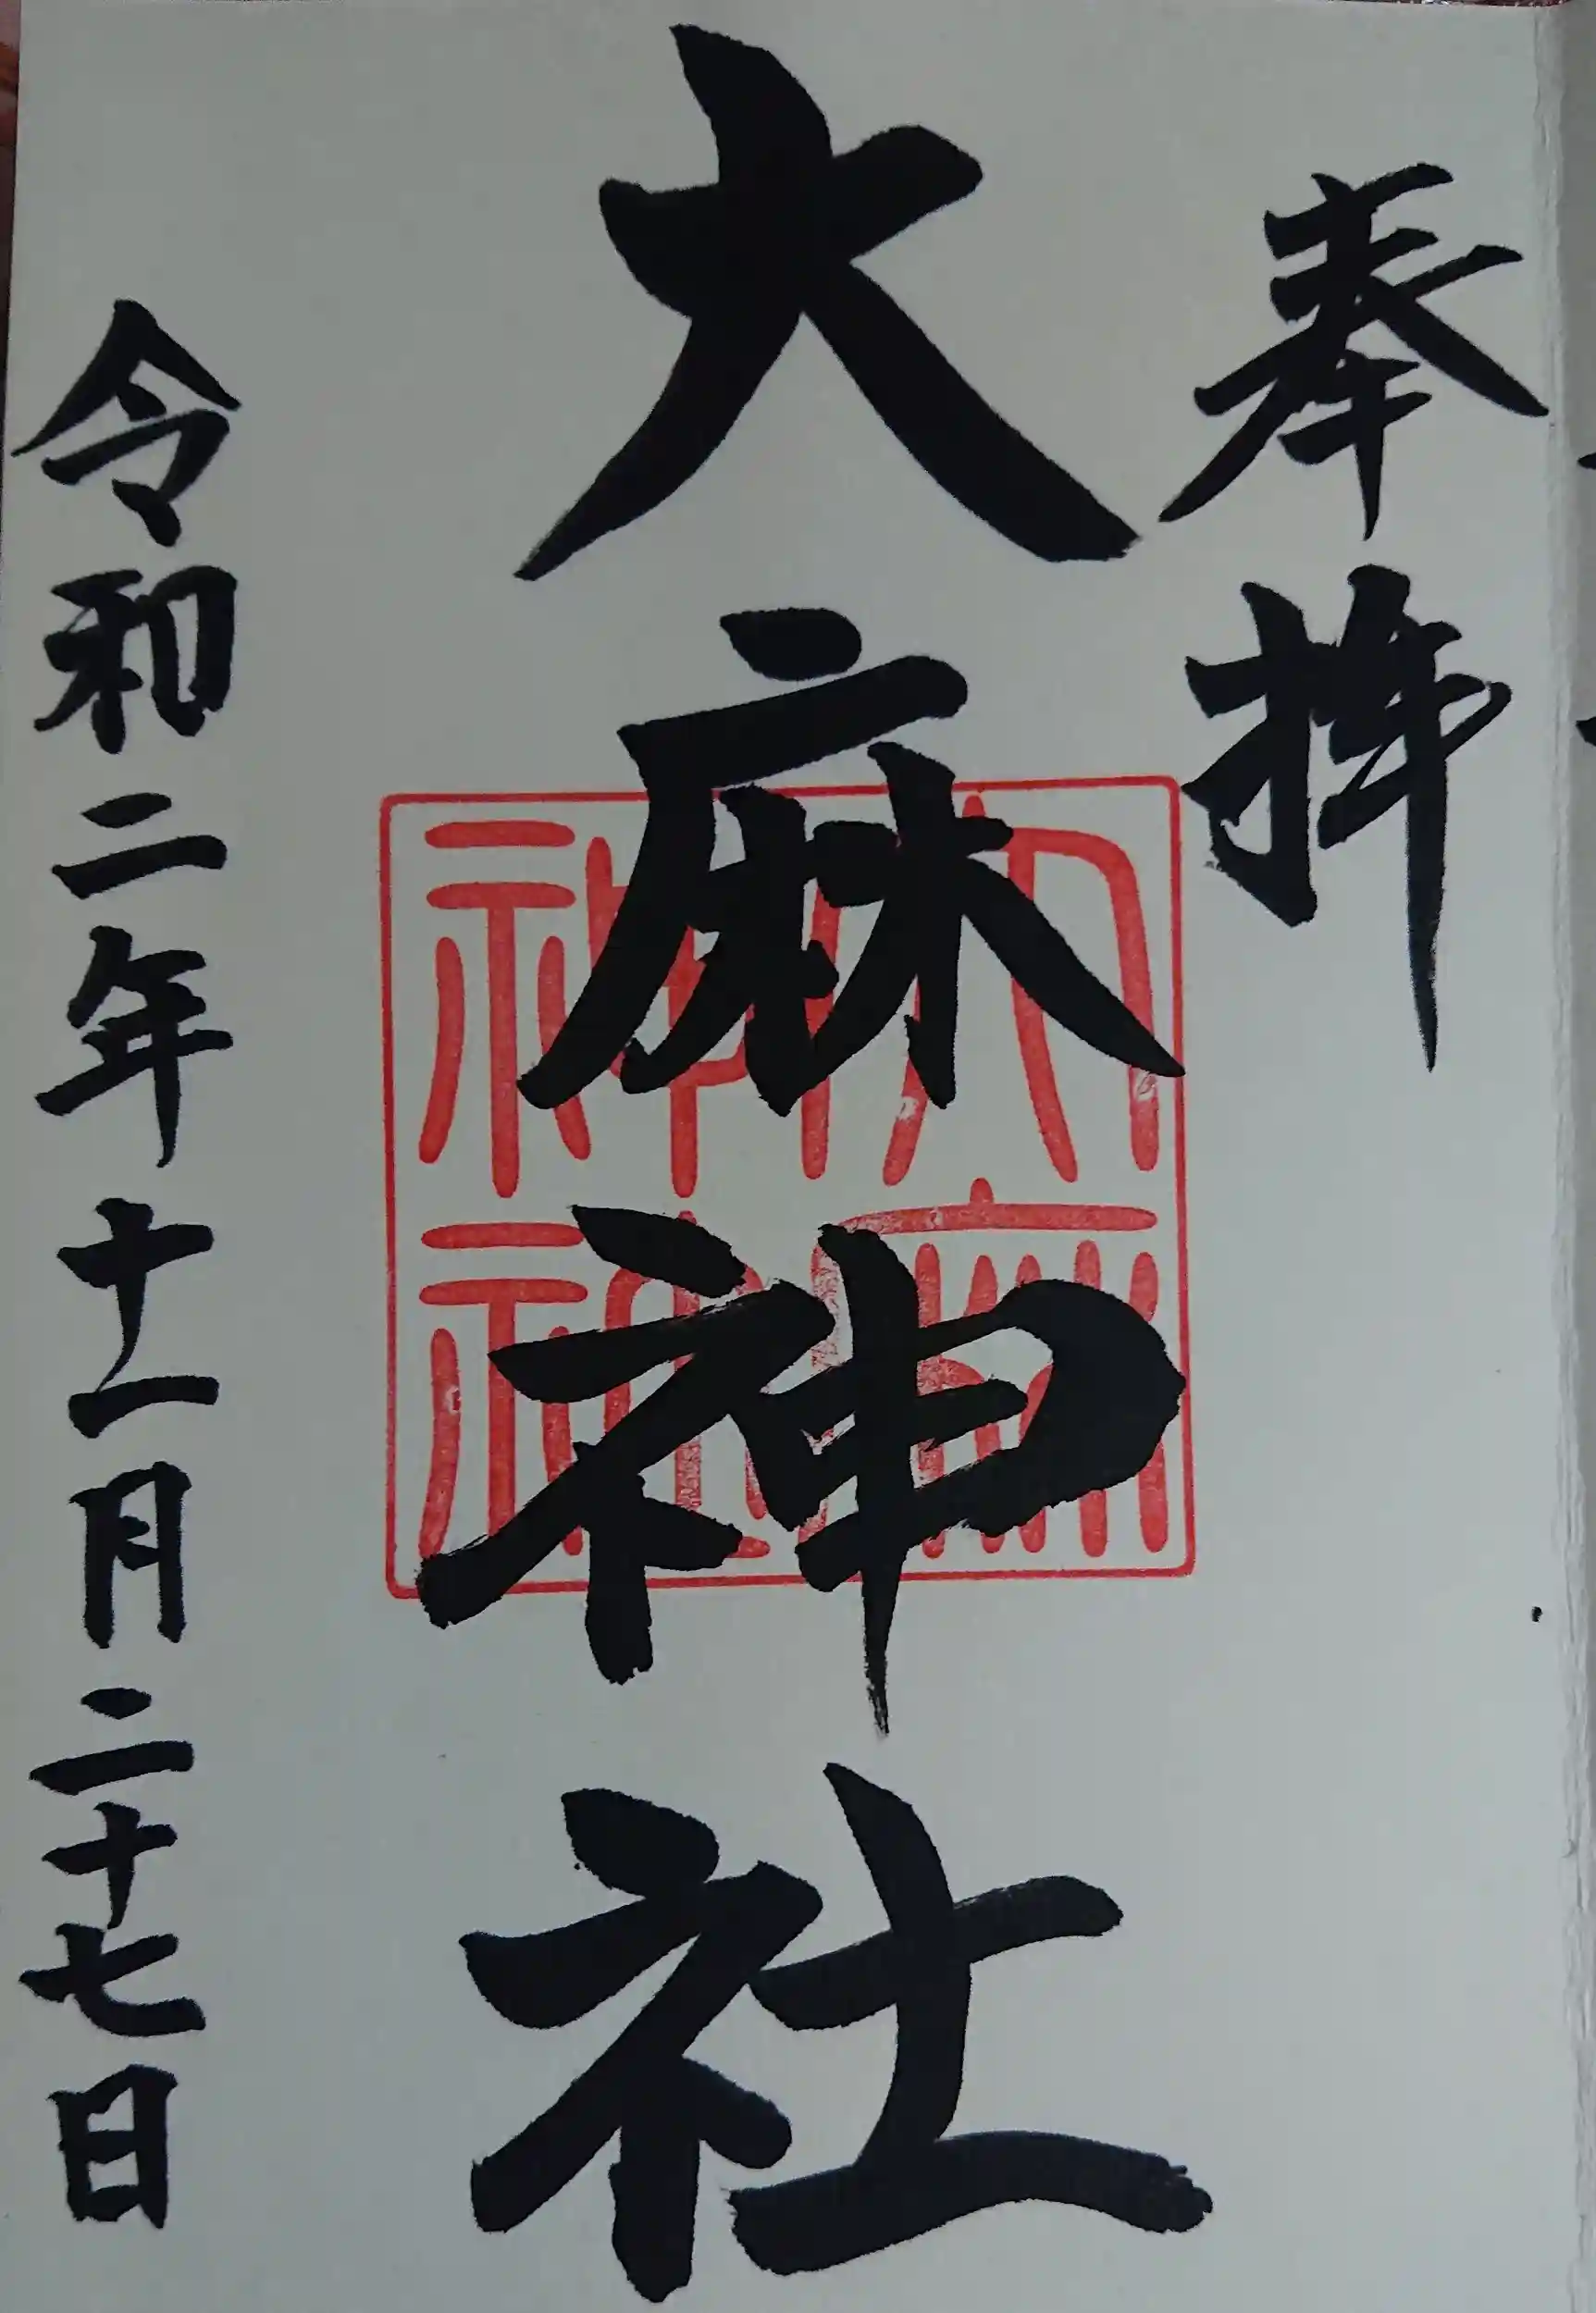 奉拝
大麻神社
大麻神社
令和二年十一月二十七日